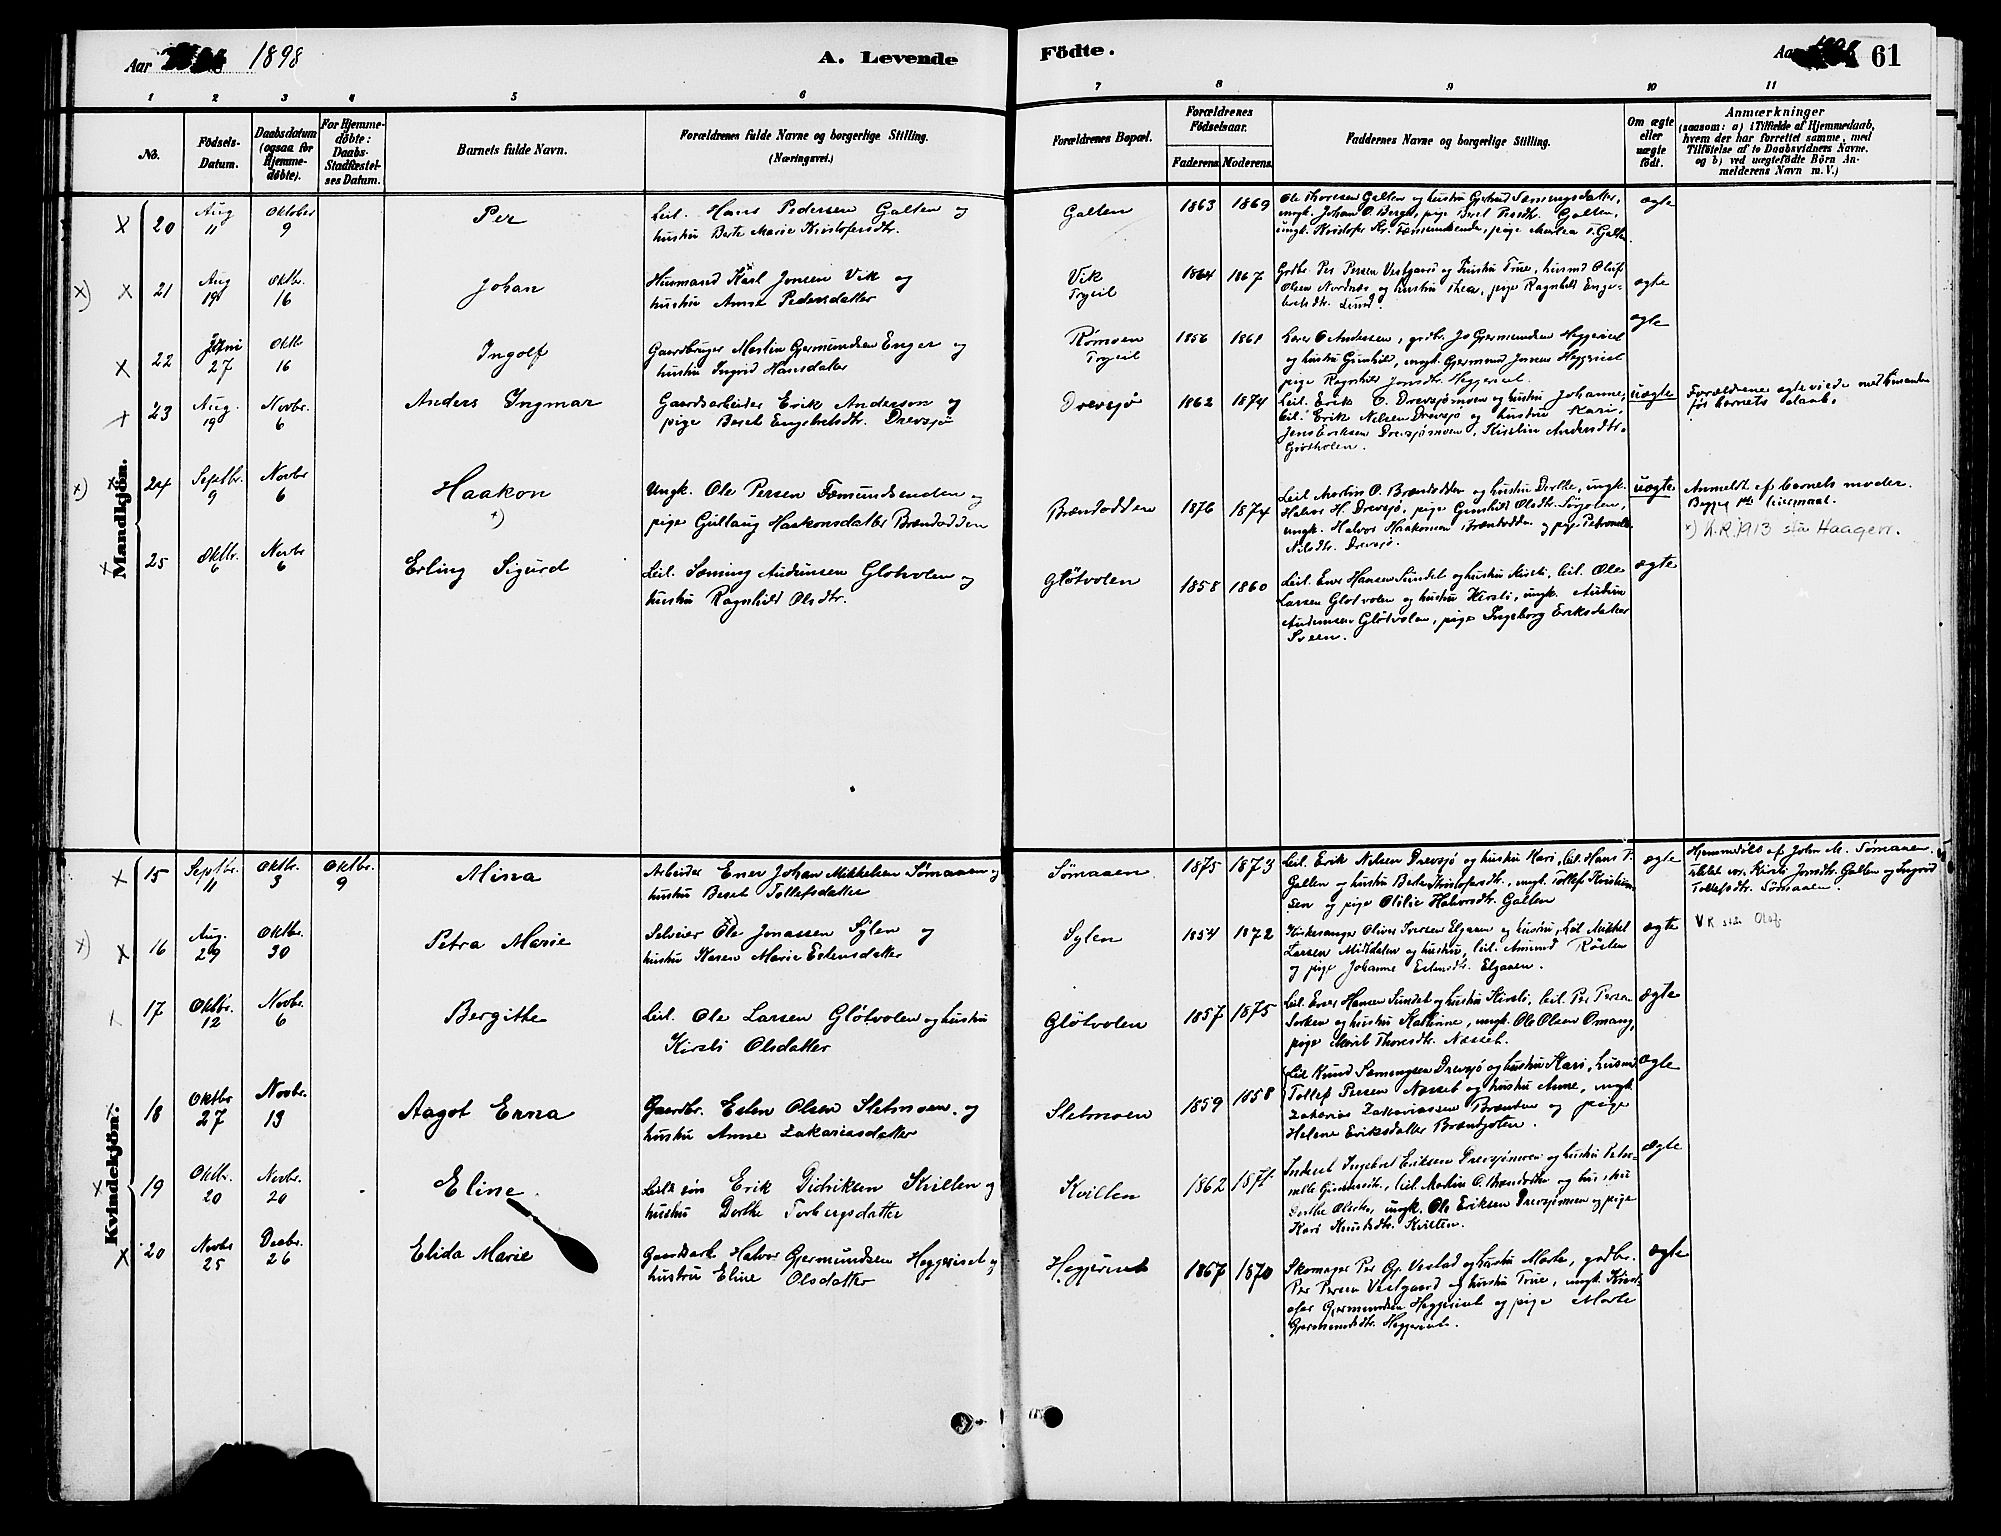 Aar 1898
A. Levende
Födte.
Aar 1898 61
1 2 3 4 5 6 7 8 9 10 11
No.
Födsels-
Datum.
Daabsdatum
(ogsaa for
Hjemme-
döbte).
For Hjemme-
döbte:
Daabs-
Stadfæstel-
ses Datum.
Barnets fulde Navn.
Forældrenes fulde Navne og borgerlige Stilling.
(Næringsvei.)
Forældrenes Bopæl.
Forældrenes
Födselsaar.
Faderens. Moderens.
Faddernes Navne og borgerlige Stilling.
Om ægte
eller
uægte
födt.
Anmærkninger
(saasom: a) i Tilfælde af Hjemmedaab,
hvem der har forrettet samme, med
Tilföielse af to Daabsvidners Navne,
og b) ved uægtefödte Börn An-
melderens Navn m. V.)
Mandkjön.
20
Aug
11
Oktober
9
Per
Leil. Hans Pedersen Galten og
hustru Berte Marie Kristofersdtr.
Galten
1863 1869
Ole Thoresen Galten og hustru Gjertrud Sæmingsdatter,
ungk. Johan O. Berget, pige Beret Persdtr. Galten,
ungk. Kristofer Kr. Fæmundsende, pige Martea T. Galten.
ægte
x) x 21
Aug
19
Oktbr.
16
Johan
Husmand Karl Jonsen Vik og
hustru Anne Pedersdatter
Vik
Trysil
1864 1867
Gdbr. Per Persen Vestgaard og hustru Trine, husmd Oluf
Olsen Nordnæs og hustru Thea, pige Ragnhild Enge-
bretsdtr. Lund.
ægte
x 22
Juni
27
Oktb
16
Ingolf
Gaardbruger Martin Gjermundsen Enger og
hustru Ingrid Hansdatter
Rømoen
Trysil
1856 1861
Lærer O Andersen, gdbr. Jo Gjermundsen Heggeriset
og hustru Gunhild, ungk. Gjermund Jonsen Heggeriset
pige Ragnhild Jonsdtr. Heggeriset.
ægte
23
Aug.
19
Novbr.
6
Anders Ingmar
Gaardsarbeider Erik Anderson og
pige Beret Engebretsdtr. Drevsjø
Drevsjø
1862 1874
Leil. Erik O. Drevsjømoen og hustru Johanne,
leil. Erik Nilsen Drevsjø og hustru Kari,
Jens Eriksen Drevsjømoen, Kristin Andersdtr.
Grøtholen.
uægte
Forældrene ægteviede med hinanden
før barnets daab.
x) x 24
Septbr.
9
Novbr
6
Haakon
x)
Ungk. Ole Persen Fæmundsenden og
pige Gullaug Haakonsdatter Brændodden
Brændodden
1876 1874
Leil Martin O. Brændodden og hustru Dorthe, ungk.
Halvor H. Drevsjø, pige Gunhild Olsdtr. Sorjolen,
ungk. Halvor Haakonsen Brændodden og pige Petronelle
Nilsdtr. Drevsjø.
uægte
Anmeldt af barnets moder.
Begges 1ste leiermaal.
x) A.R. 1913 står Haagen.
x 25
Oktbr.
6
Novbr
6
Erling Sigurd
Leil. Sæming Audunsen Glötvolen og
hustru Ragnhild Olsdtr.
Glötvolen
1858 1860
Leil. Ener Hansen Sundet og hustru Kirsti, leil. Ole
Larsen Glötvolen og hustru Kirsti, ungk. Audun
Audunsen Glötvolen, pige Ingeborg Eriksdatter
Sveen.
ægte
Kvindekjön.
x 15
Septbr.
11
Oktbr.
3
Oktbr.
9
Alina
Arbeider Ener Johan Mikkelsen Sømaaen og
hustru Beret Tollefsdatter
Sømaaen
1875 1873
Leil. Erik Nilsen Drevsjø og hustru Kari, leil. Hans P.
Galten og hustru Berte Kristofersdtr., ungk. Tollef Kristian-
sen og pige Otilie Halvorsdtr. Galten
ægte
Hjemmedöbt af John M. Sømaaen.
Tilstede var Kirsti Jonsdtr. Galten og Ingrid
Tollefsdtr. Sømaaen.
x) x 16
Aug.
29
Oktbr.
30
Petra Marie
Selveier Ole x) Jonassen Sylen og
hustru Karen Marie Estensdatter
Sylen
1854 1872
Kirkesanger Oliver Iversen Elgaaen og hustru, leil Mikkel
Larsen Mikkdalen og hustru, leil. Amund Røsten
og pige Johanne Estensdtr. Elgaaen.
ægte
VK står Olof
17
Oktbr.
12
Novbr.
6
Bergitte
Leil. Ole Larsen Glötvolen og hustru
Kirsti Olsdatter
Glötvolen
1857 1875
Leil. Ener Hansen Sundet og hustru Kirsti, leil. Per Persen
Sorken og hustru Kathrine, ungk. Ole Olsen Omang,
pige Marit Thoresdtr. Næsset.
ægte
18
Oktbr
27
Novbr.
13
Aagot Erna
Gaardbr. Esten Olsen Sletmoen. og
hustru Anne Zakariasdatter
Sletmoen
1859 1858
Leil Knud Sæmingsen Drevsjø og hustru Kari, husmd
Tollef Persen Næsset og hustru Anne, ungk
Zakarias Zakariassen Brænden og pige
Helene Eriksdatter Brændjoten.
ægte
x 19
Oktbr.
20
Novbr.
20
Eline
Leil's søn Erik Didriksen Kvilten og
hustru Dorthe Torbergsdatter
Kvilten
1862 1871
Inderst Ingebret Eriksen Drevsjømoen og hustru Petro-
nelle, leil. Martin O. Brændodden og hustru
Dorthe Olsdtr, ungk. Ole Eriksen Drevsjømoen og pige
Kari Knudsdtr. Kvilten.
ægte
x 20
Novbr
25
Decbr.
26
Elida Marie
Gaardbark Halvor Gjermundsen Heggeriset og
hustru Eline Olsdatter
Heggeriset
1867 1870
Skomager Per Gj. Vestad og hustru Marte, gaardbr.
Per Persen Vestgaard og hustru Trine, ungk. Krist-
ofer Gjermundsen Heggeriset og pige Marte
Gjermundsdtr. Heggeriset.
ægte